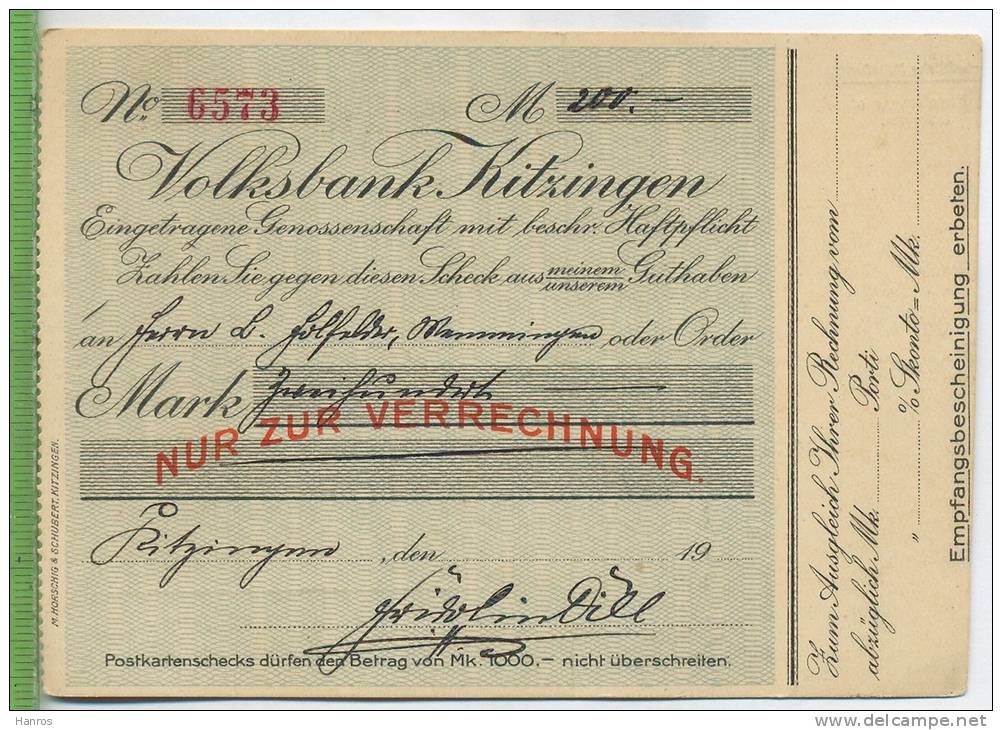 No. 6573 M 200.—
Volksbank Kitzingen
Eingetragene Genossenschaft mit beschr. Haftpflicht
Zahlen Sie gegen diesen Scheck aus meinem Guthaben
unserem
an Herrn L. Wemmingen oder Order
Mark Zweihundert
NUR ZUR VERRECHNUNG.
Kitzingen, den 19
Fridolin Dill
Postkartenschecks dürfen den Betrag von Mk. 1000,– nicht überschreiten.
M. HORSCHIG & SCHUBERT, KITZINGEN.
Zum Ausgleich Ihrer Rechnung vom
abzüglich Mk. Porti
„ % Skonto=Mk.
Empfangsbescheinigung erbeten.
Hanros
delcampe.net